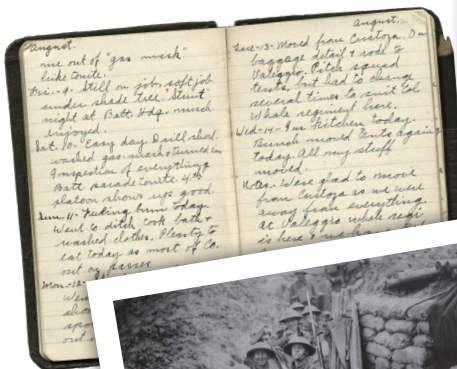 August.
me out of "gas mask"
hike tonite.
Fri.-9- Still on job, soft job
under shade tree. Stunt
night at Batt. Hdq. much
enjoyed.
Sat. 10- Easy day. Drill short.
washed gas-mask & turned in
Inspection of everything
Batt parade tonite. 4th
platoon shows up good.
Sun. 11- Feeling bum today.
Went to ditch, took bath &
washed clothes. Plenty to
eat today as most of Co.
out on passes.
Mon-12-
August.
Tues-13- Moved from Custoza. On
baggage detail & rode to
Valeggio. Pitch squad
tents, but had to change
several times to suit Col
Whole regiment here.
Wed-14- In Kitchen today.
Bunch moved tents again
today. All my stuff
moved.
Notes- Were glad to move
from Custoza as we were
away from everything.
At Valeggio whole regi
is here & we have